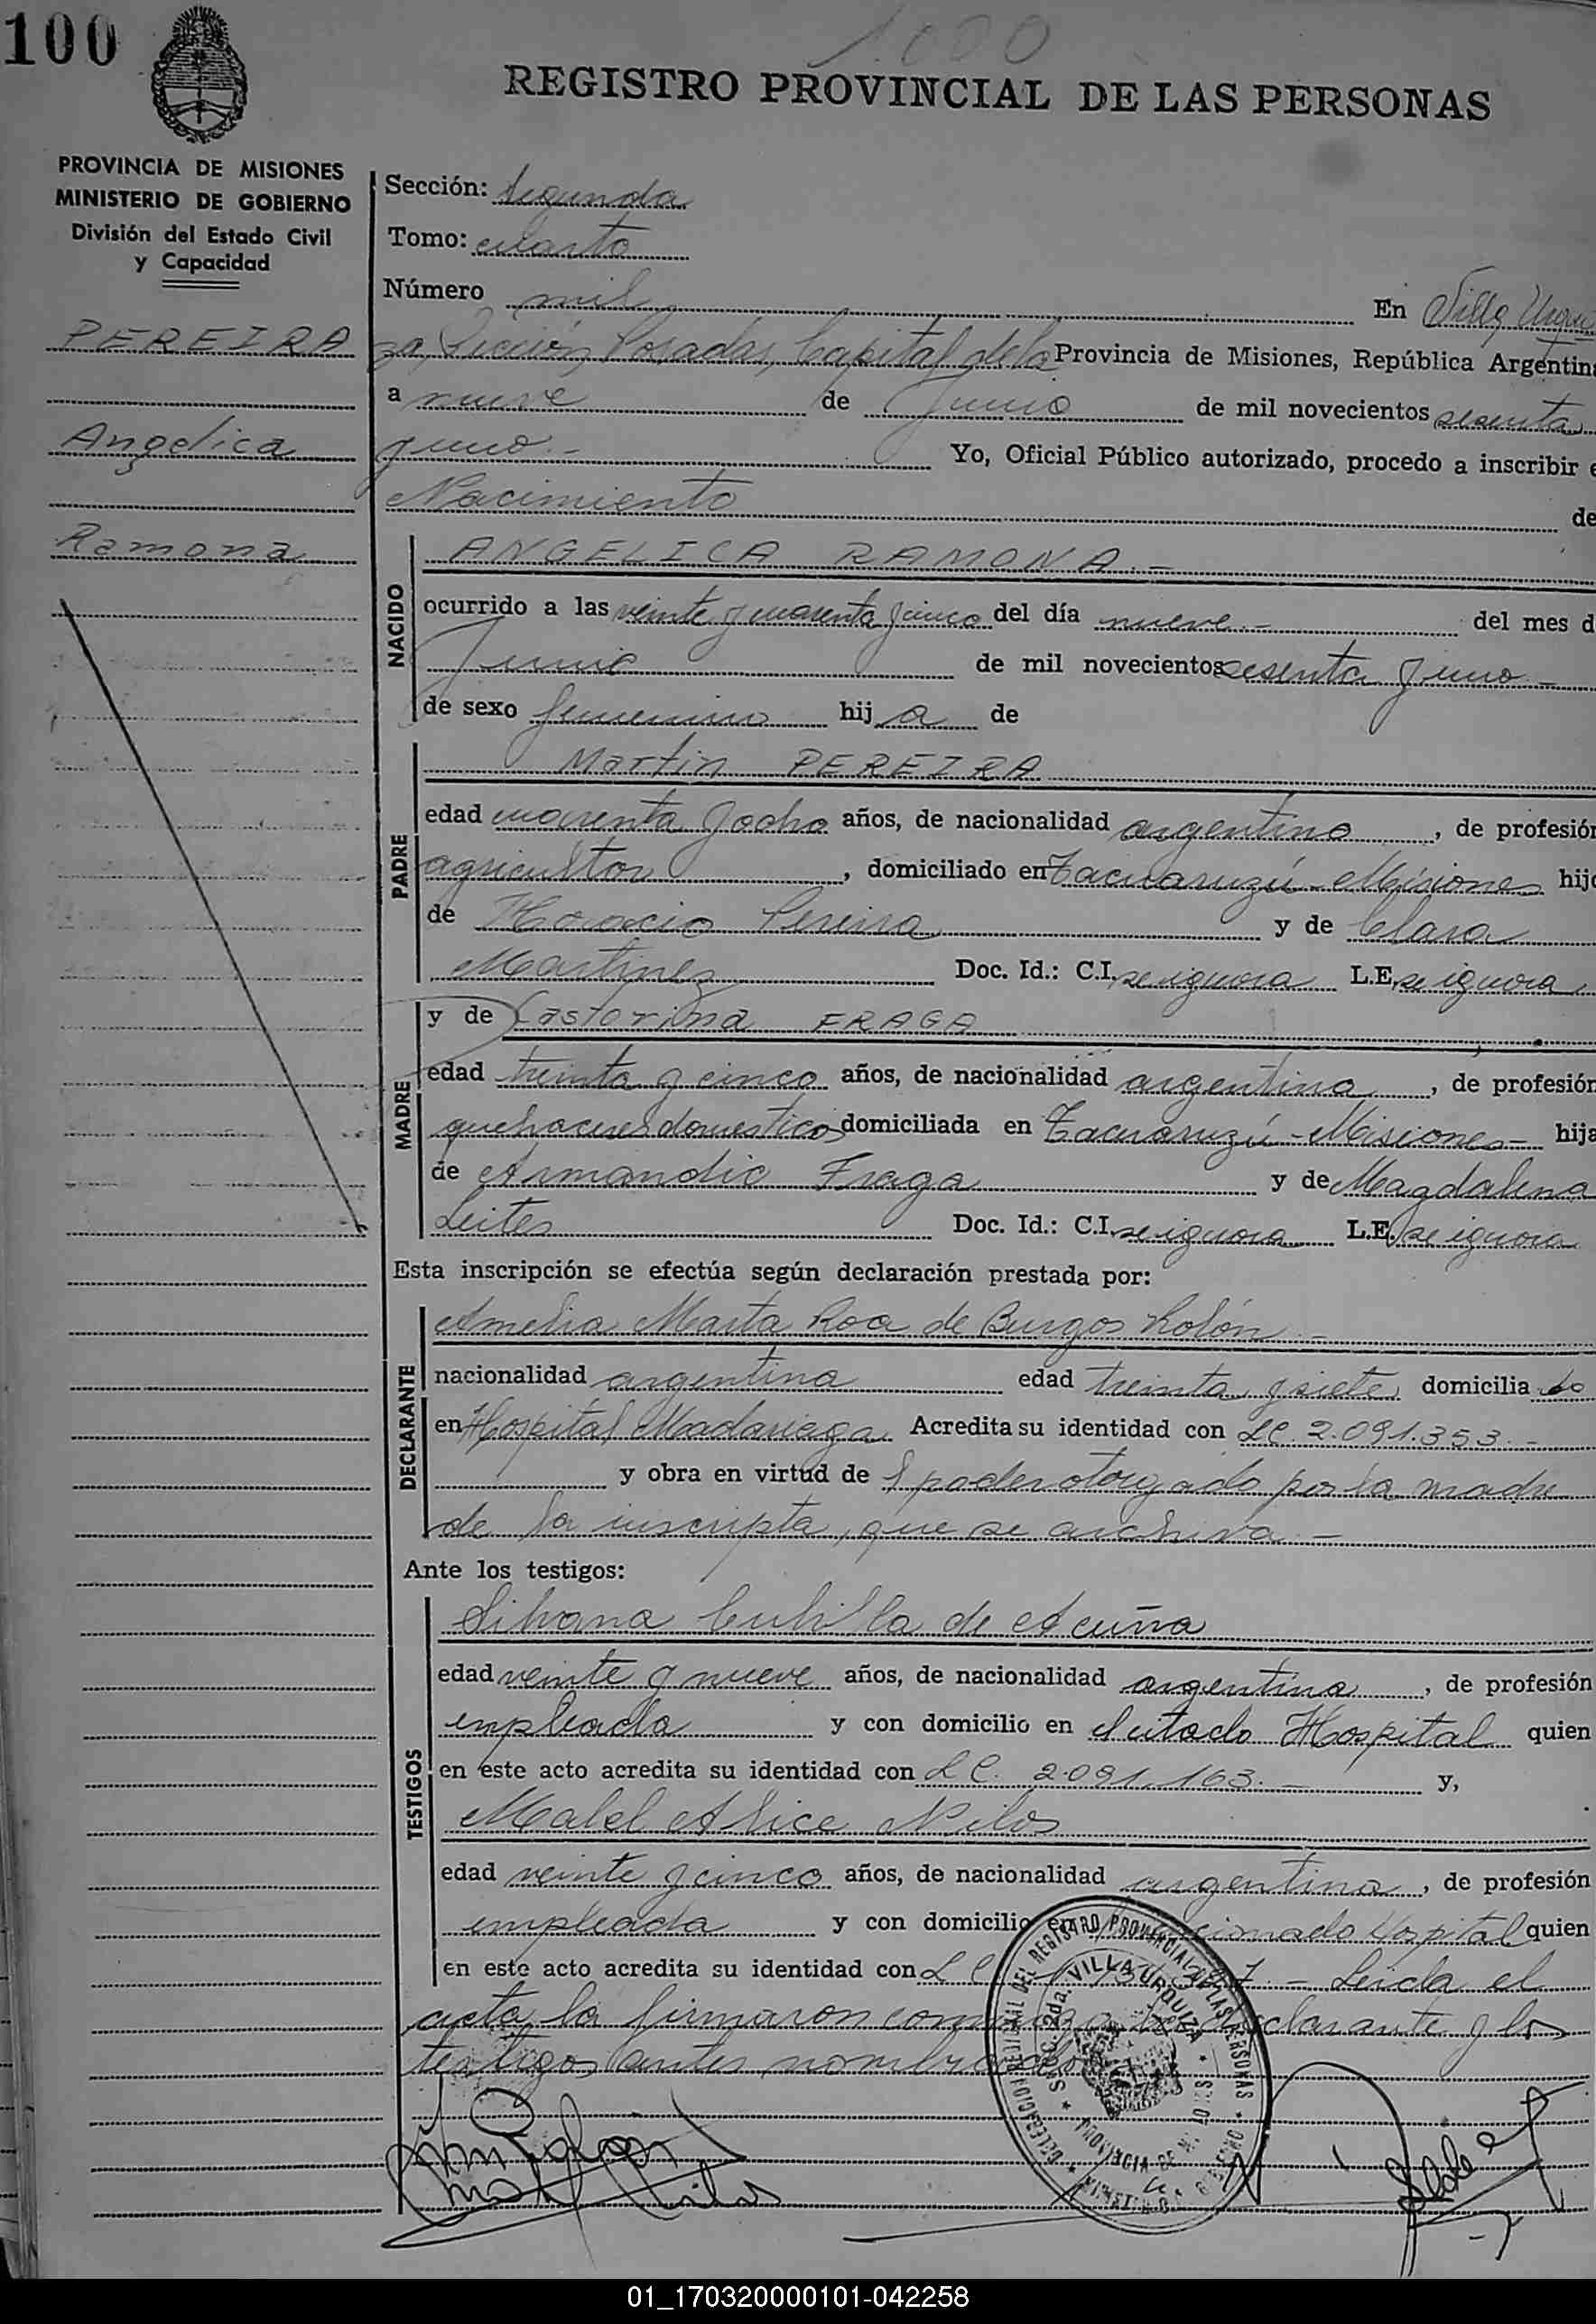 100
1.000
REGISTRO PROVINCIAL DE LAS PERSONAS
PROVINCIA DE MISIONES
MINISTERIO DE GOBIERNO
División del Estado Civil
y Capacidad
PEREIRA
Angelica
Ramona
Sección: Segunda
Tomo: cuarto
Número mil En Villa Urqui
za, Posadas, Capital de la Provincia de Misiones, República Argentina
a nueve de Junio de mil novecientos sesenta
y uno.- Yo, Oficial Público autorizado, procedo a inscribir e
Nacimiento de
NACIDO
ANGELICA RAMONA.-
ocurrido a las veinte y cuarenta y cinco del día nueve.- del mes d
Junio de mil novecientos sesenta y uno -
de sexo femenino hija de
PADRE
Martin PEREIRA
edad cuarenta y ocho años, de nacionalidad argentino, de profesión
agricultor, domiciliado en Tacuaruzú - Misiones hijo
de Horacio Pereira y de Clara
Martinez Doc. Id.: C.I. se ignora L.E. se ignora
MADRE
y de Castorina FRAGA
edad treinta y cinco años, de nacionalidad argentina, de profesión
quehaceres domesticos domiciliada en Tacuaruzú - Misiones - hija
de Armandio Fraga y de Magdalena
Leites Doc. Id.: C.I. se ignora L.E. se ignora
Esta inscripción se efectúa según declaración prestada por:
DECLARANTE
Amelia Marta Roa de Burgos Rolón -
nacionalidad argentina edad treinta y siete domicilia do
en Hospital Madariaga Acredita su identidad con LC. 2.091.353.-
y obra en virtud de l poder otorgado por la madre
de la inscripta, que se archiva -
Ante los testigos:
TESTIGOS
Silvana Cubilla de Acuña
edad veinte y nueve años, de nacionalidad argentina, de profesión
empleada y con domicilio en el citado Hospital quien
en este acto acredita su identidad con LC. 2.091.163.- y,
Mabel Alice Nilos
edad veinte y cinco años, de nacionalidad argentina, de profesión
empleada y con domicilio en cionado Hospital quien
en este acto acredita su identidad con LC - Leida el
acta, la firmaron conmigo la declarante y los
testigos antes nombrados
DELEGACION REGIONAL DEL REGISTRO PROVINCIAL DE LAS PERSONAS
SECC. 2da. VILLA URQUIZA
01_170320000101-042258